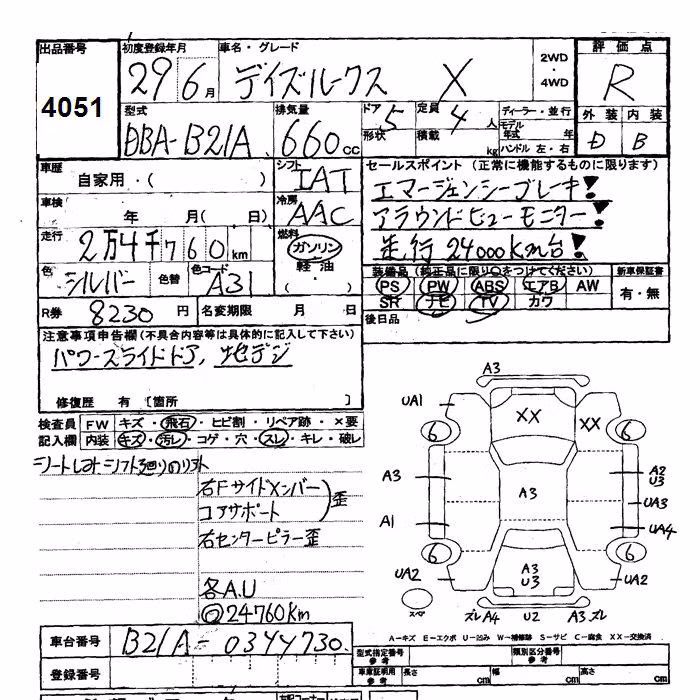 出品番号 初度登録年月 車名・グレード 2WD・4WD 評価点
4051 29 6月 デイズルークス X R
型式 排気量 ドア 形状 定員 積載 ディーラー・並行 モデル年式 年 ハンドル 左・右 外装 内装
DBA-B21A 660cc 5 4人 kg D B
車歴 自家用・( ) シフト IAT セールスポイント(正常に機能するものに限ります)
エマージェンシーブレーキ!
車検 年 月( 日) 冷房 AAC アラウンドビューモニター!
走行 2万4千760km 燃料 ガソリン 軽油 ・( ) 走行24000Km台!
色 シルバー 色替 色コード A31 装備品(純正品に限り○をつけてください) 新車保証書
PS PW ABS エアB AW 有・無
SR ナビ TV カワ
R券 8230円 名変期限 月 日 後日品
注意事項申告欄(不具合内容等は具体的に記入して下さい)
パワースライドドア、地デジ
修復歴 有 [箇所 ]
検査員記入欄 FW キズ・飛石・ヒビ割・リペア跡・×要
内装 キズ・汚レ・コゲ・穴・スレ・キレ・破レ
右Fサイドメンバー
コアサポート 歪
右センターピラー歪
各A.U
@24760Km
A3
UA1 XX XX
6 6
A3 A3 A2 U3
UA3
A1 UA4
6 6
UA2 A3 U3 UA2
スペア ズレ A4 U2 A3 ズレ
A-キズ E-エクボ U-凹み W-補修跡 S-サビ C-腐食 XX-交換済
車台番号 B21A-0344730 型式指定番号 参考 類別区分番号 参考
登録番号 車庫証明用 参考 長さ cm 幅 cm 高さ cm